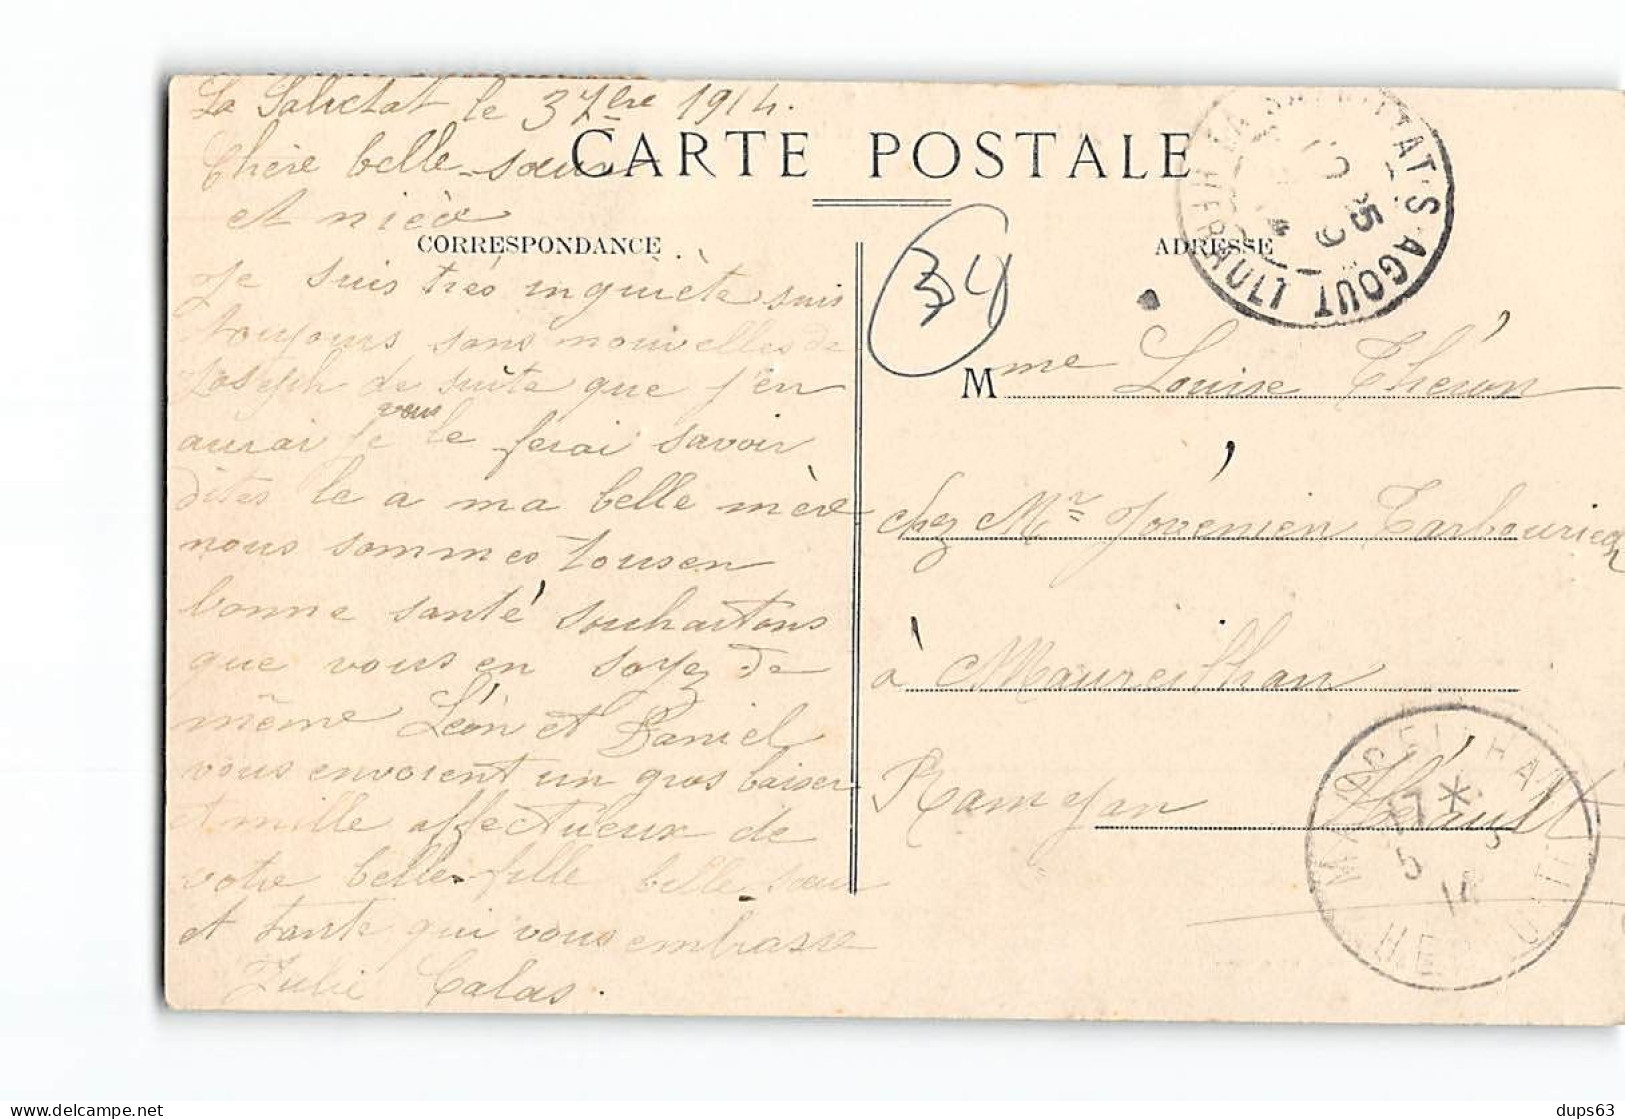 La Salvetat le 3 7bre 1914.
CARTE POSTALE
Chère belle-sœur
et nièce
CORRESPONDANCE
Je suis très inquiète suis
toujours sans nouvelles de
Joseph de suite que j'en
aurai je vous le ferai savoir
dites le a ma belle mère
nous sommes tous en
bonne santé souhaitons
que vous en soyez de
même Léon et Daniel
vous envoient un gros baiser
et mille affectueux de
votre belle-fille belle sœur
et tante qui vous embrasse
Julie Calas.
34
ADRESSE
LA SALVETAT-S-AGOUT HERAULT
5 9
14
Mme Louise Théron
chez Mr Jouvenien Tarbouriech
à Maureilhan
Ramejan Hérault
MAUREILHAN
17 *
5
14
HERAULT
delcampe.net
dups63